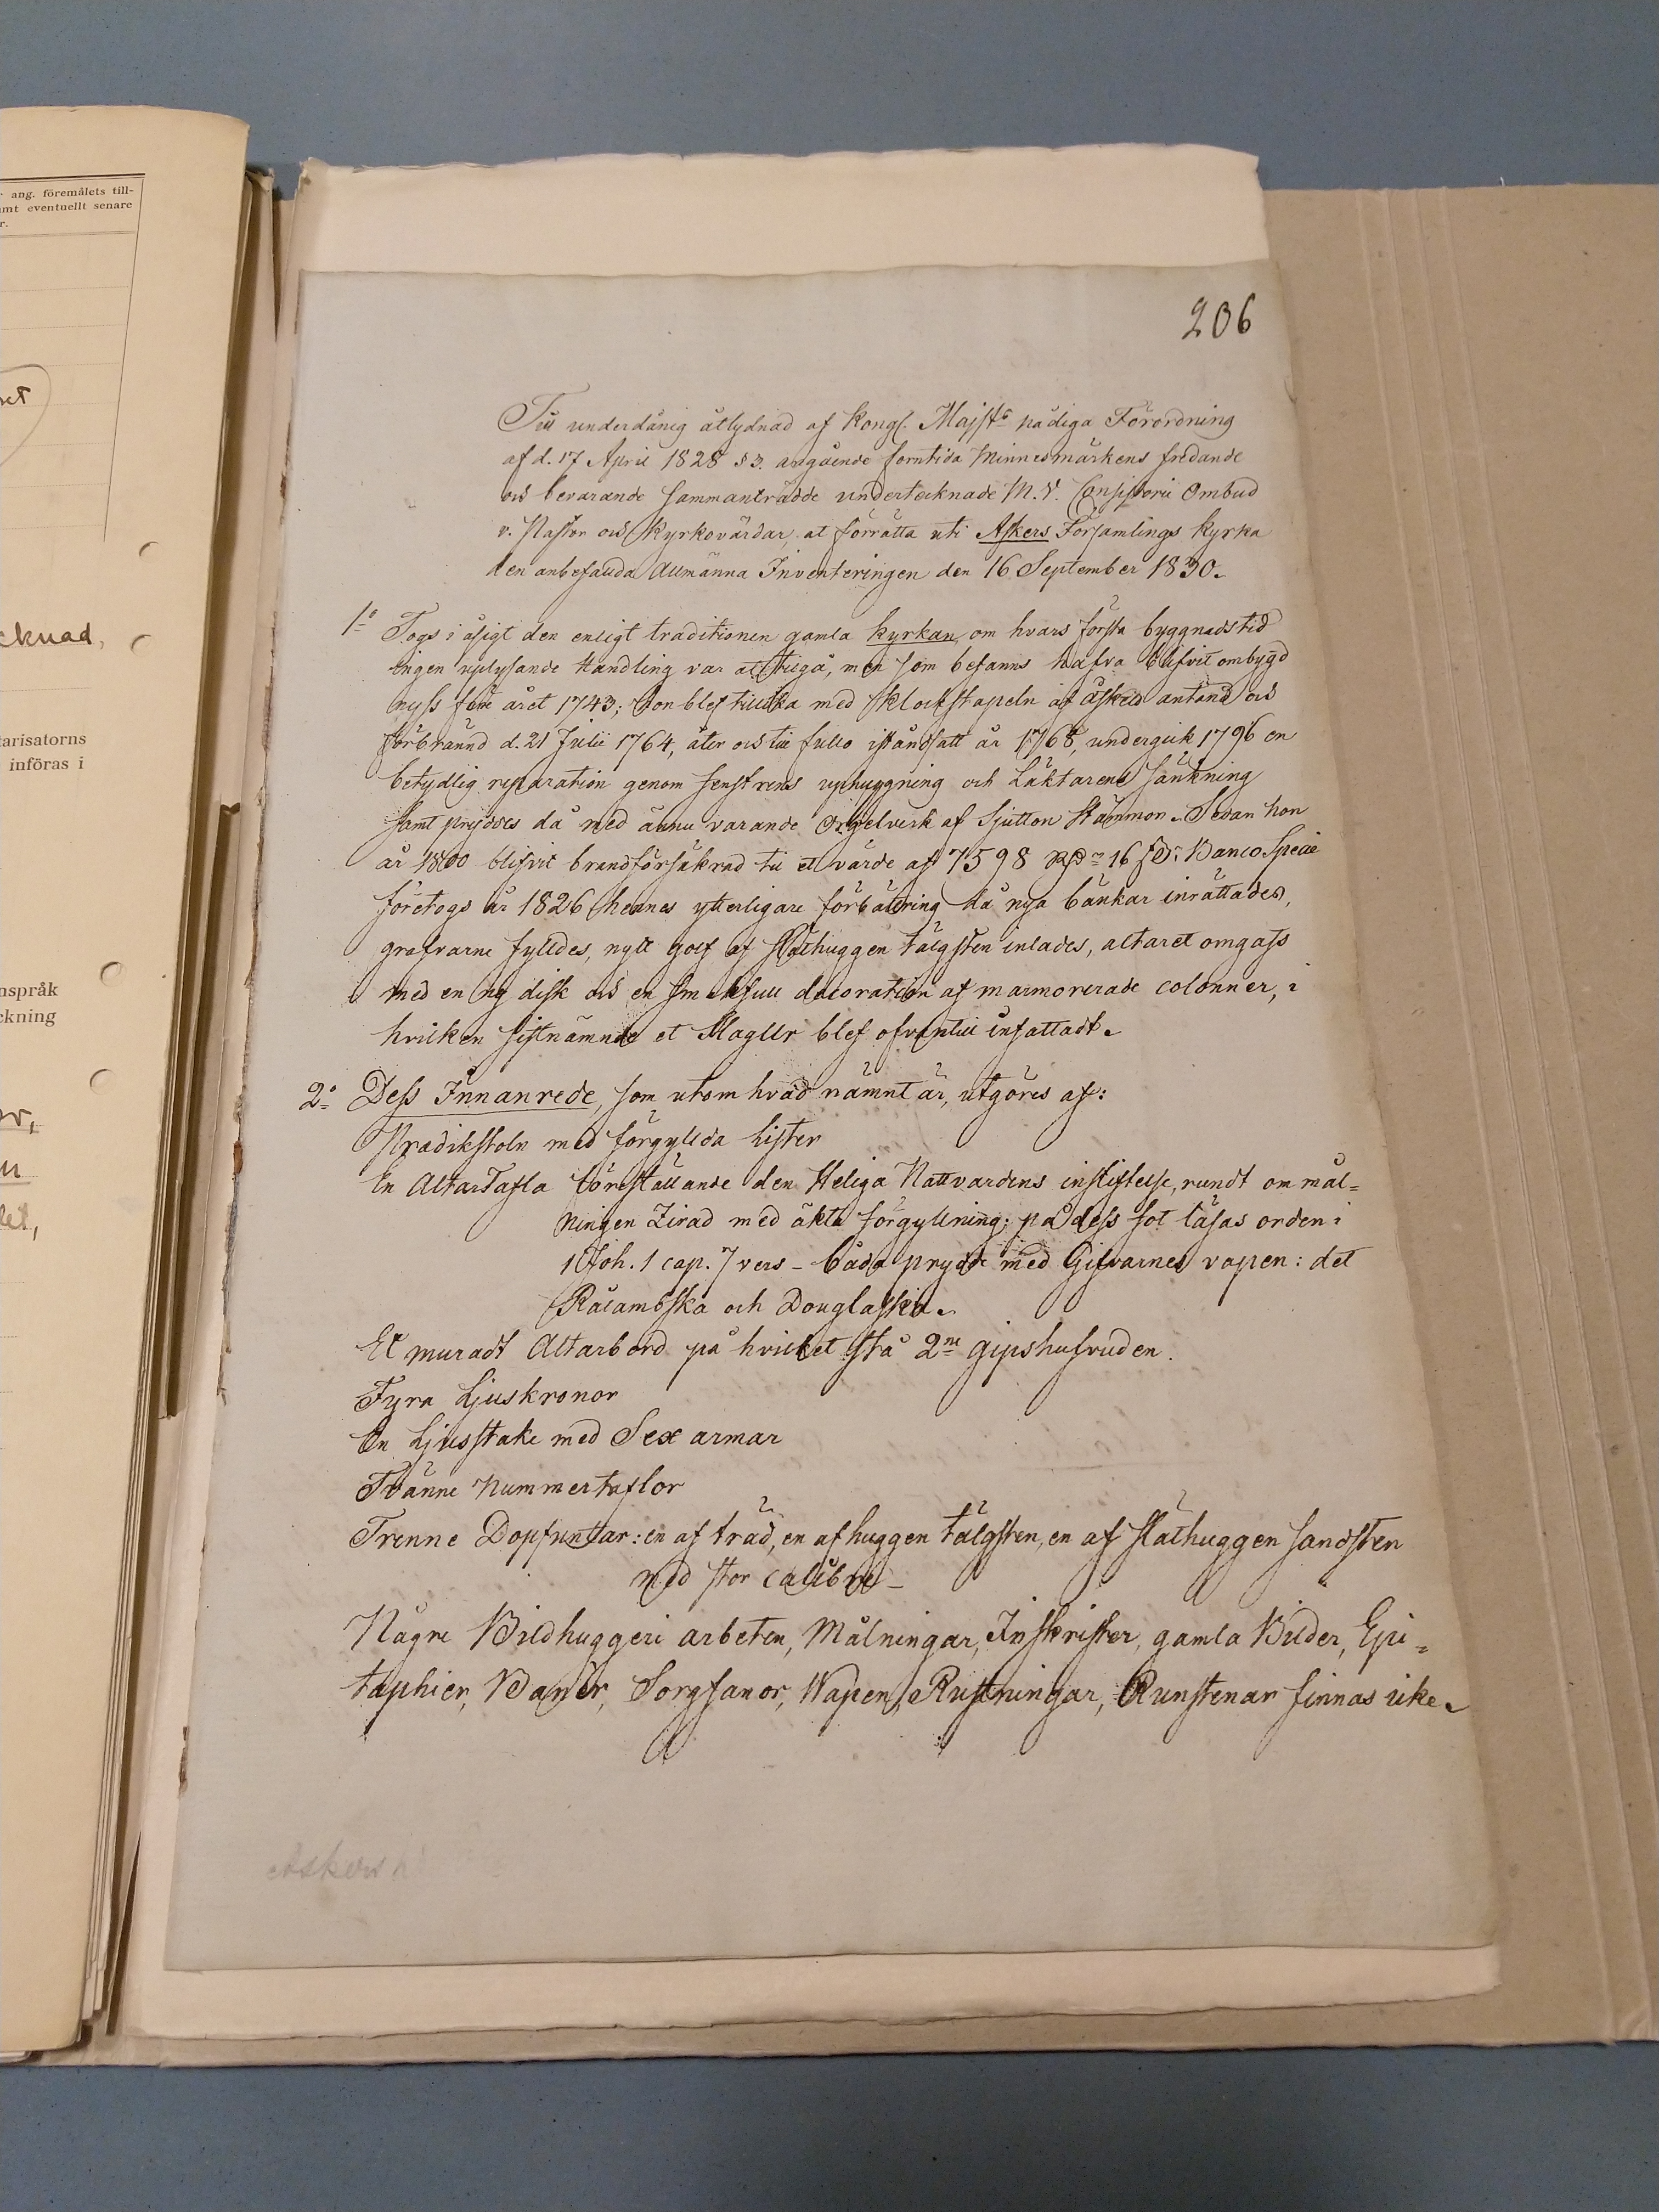 r ang. föremålets till-
amt eventuellt senare
r.
cknad,
tarisatorns
införas i
nspråk
ckning
206
Till underdånig åtlydnad af Kongl. Majsts nådiga Förordning
af d. 17 April 1828 § 3. angående forntida Minnesmärkens fredande
och bevarande sammanträdde undertecknade M.V. Consistorii Ombud
v. Pastor och Kyrkovärdar, at förrätta uti Askers Församlings Kyrka
den anbefallda Allmänna Inventeringen den 16 September 1830.
1o Togs i åsigt den enligt traditionen gamla Kyrkan, om hvars första byggnadstid
ingen uplysande Handling var at tilgå, men som befanns hafva blifvit ombygd
nyss före året 1743; Hon blef tillika med Klockstapeln af åskeld antänd och
förbränd d. 21 Julii 1764, åter och till fullo iståndsatt år 1768, undergick 1796 en
betydlig reparation genom fenstrens uphuggning och Läktarens sänkning
samt pryddes då med ännu varande Orgelverk af Sjutton Stämmor. Sedan hon
år 1800 blifvit brandförsäkrad til et värde af 7598 Rdr 16 sk. Banco Specie
företogs år 1826 hennes ytterligare förbätring då nya bänkar inrättades,
grafvarne fylldes, nytt golf af släthuggen tälgsten inlades, altaret omgafs
med en ny disk och en smakfull decoration af marmorerade colonner, i
hvilken sistnämnde et Slagur blef ofvantill infattadt.
2o Dess Innanrede, som utom hvad nämnt är, utgöres af:
Predikstoln med förgyllda Lister
En Altartafla föreställande den Heliga Nattvardens instiftelse, rundt om mål=
ningen Zirad med äkta förgyllning; på dess fot läsas orden i
1 Joh. 1 cap. 7 vers – båda prydde med Gifvarnes vapen: det
Rålambska och Douglasska.
Et muradt Altarbord på hvilket stå 2ne gipshufvuden.
Fyra Ljuskronor
En Ljusstake med Sex armar
Tvänne Nummertaflor
Trenne Dopfuntar: en af träd, en af huggen tälgsten, en af släthuggen sandsten
med stor calibre –
Några Bildhuggeri arbeten, Målningar, Inskrifter, gamla Bilder, Epi=
taphier, Baner, Sorgfanor, Wapen, Rustningar, Runstenar finnas icke.
Askers